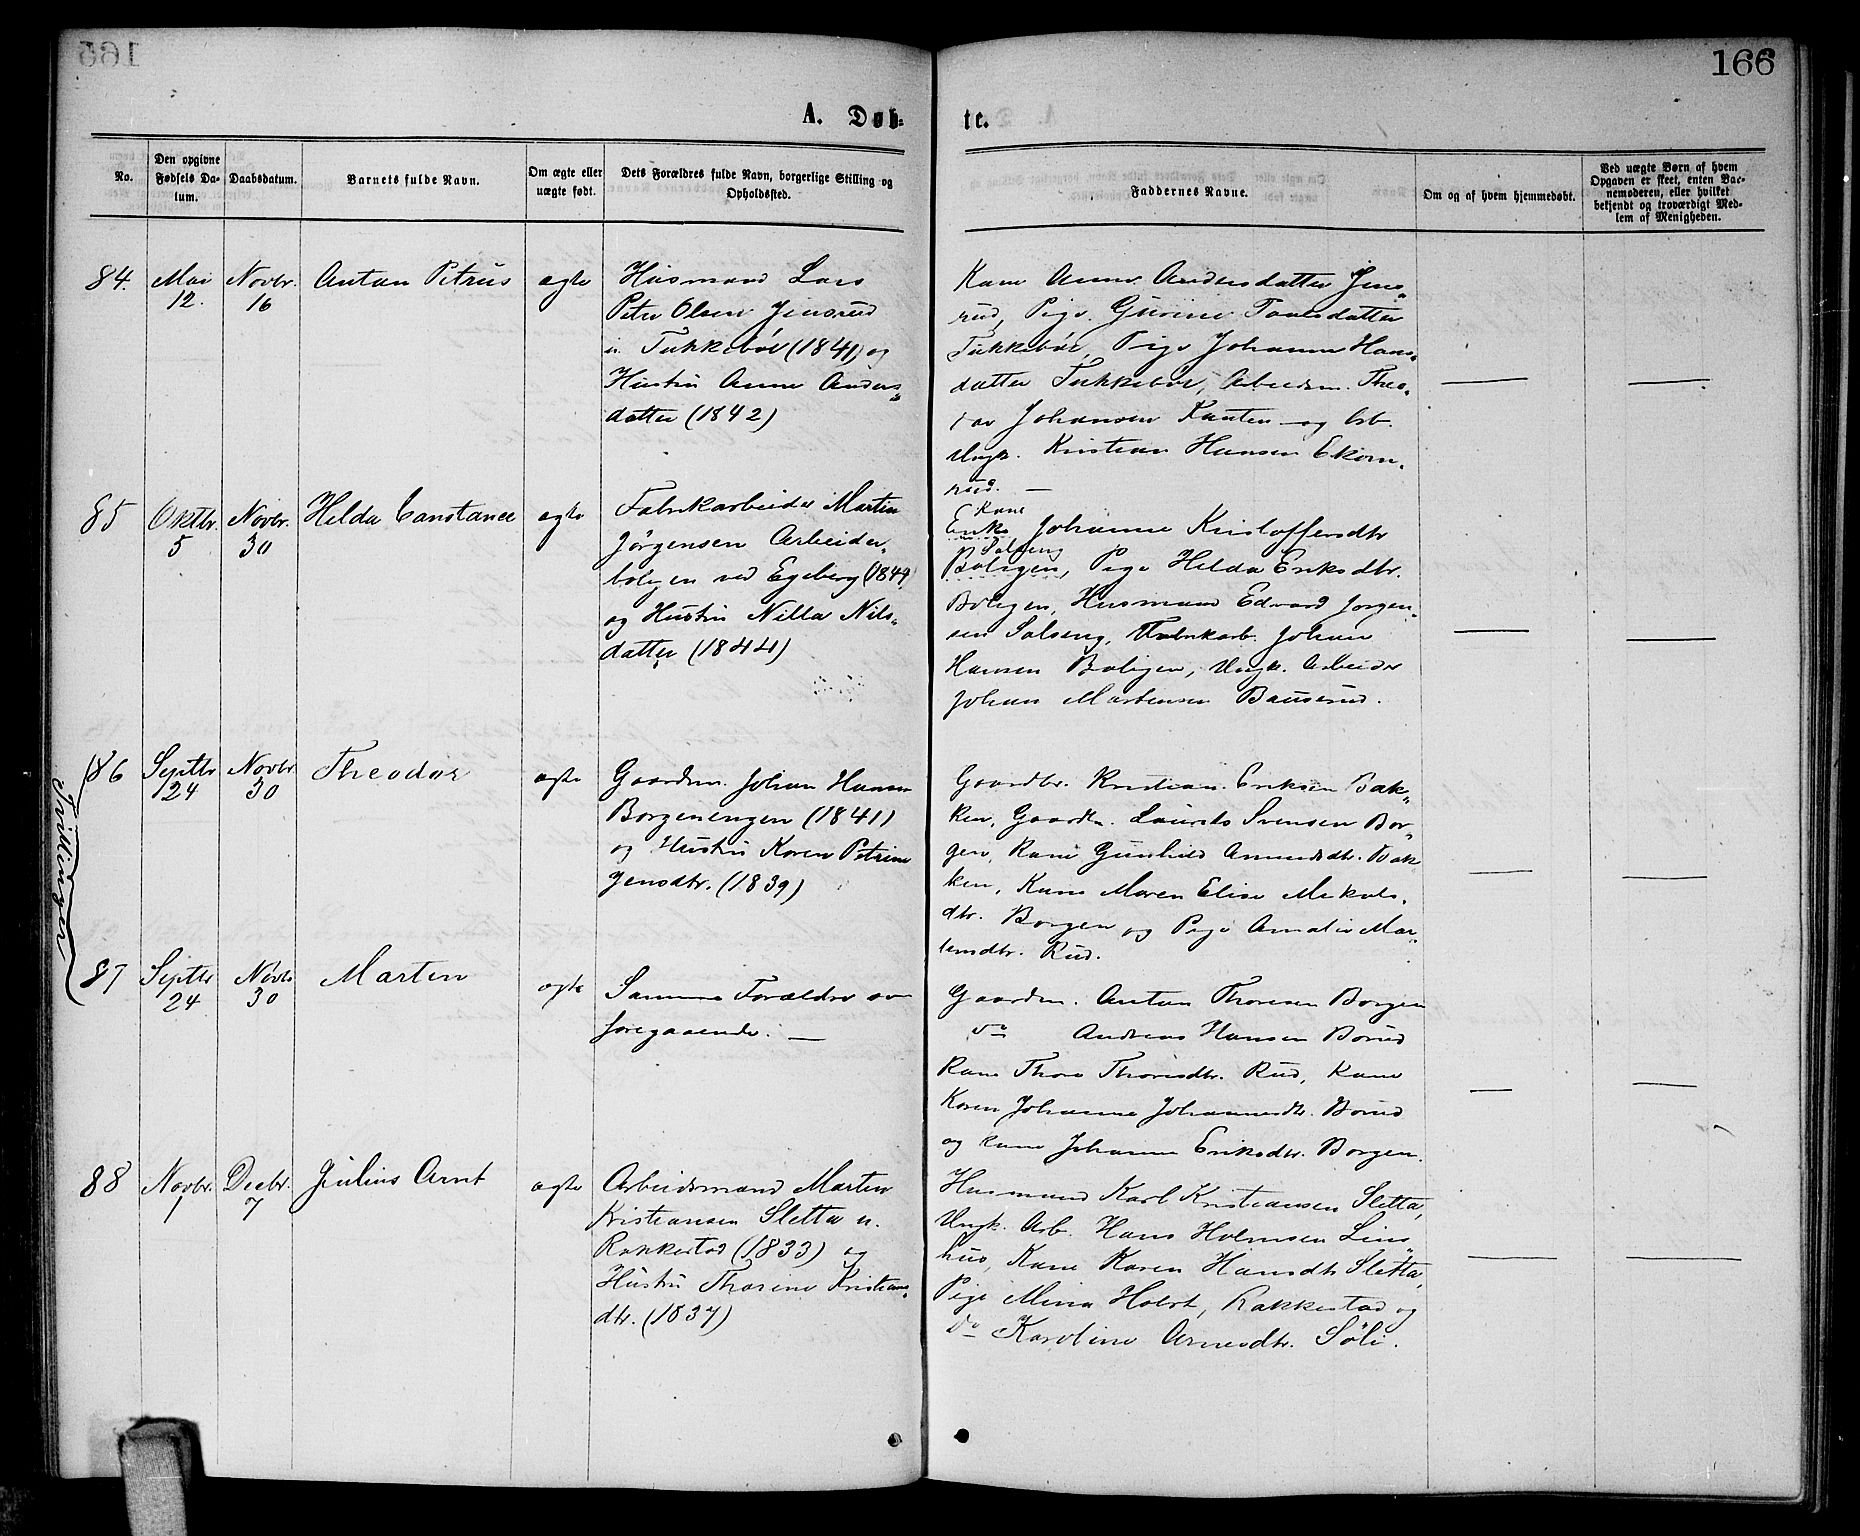 166
A. Døb-
te.
No.
Den opgivne Fødsels Da-tum.
Daabsdatum.
Barnets fulde Navn.
Om ægte eller uægte født.
Dets Forældres fulde Navn, borgerlige Stilling og Opholdssted.
Faddernes Navne.
Om og af hvem hjemmedøbt.
Ved uægte Børn af hvem Opgaven er skeet, enten Bar-nemoderen, eller hvilket bekjendt og troværdigt Med-lem af Menigheden.
84.
Mai
12.
Novbr.
16
Anton Petrus
ægte
Husmand Lars
Peter Olsen Jensrud
u. Tukkebøl (1841) og
Hustru Anne Anders-
datter (1842)
Kone Anne Andersdatter Jens-
rud, Pige Gurine Tomesdatter
Tukkebøl, Pige Johanne Hans-
datter Tukkebøl, Arbeidsm. Theo-
dor Johansen Kanten og
Ungk. Kristian Hansen Ekorn-
rud. —
85
Oktbr.
5
Novbr.
30
Hilda Constance
ægte
Fabrikarbeider Martin
Jørgensen Arbeider-
boligen ved Egeberg (1844)
og Hustru Nilla Nils-
datter (1844)
Kone
Enke Johanne Kristoffersdtr
Solseng
Boligen, Pige Hilda Eriksdtr.
Boligen, Husmand Edvard Jorgen-
sen Solseng, Fabrikarb. Johan
Hansen Boligen, Ungk. Arbeider
Johan Martinsen Bauserud.
Tvillinger
86
Septbr
24
Novbr
30
Theodor
ægte
Gaardm. Johan Hansen
Borgenengen (1841)
og Hustru Karen Petrine
Jensdtr. (1839)
Gaardbr. Kristian Eriksen Bak-
ken, Gaardm. Laurits Svensen Bor-
gen, Kone Gunhild Amundsdtr. Bak-
ken, Kone Maren Elise Mikals-
dtr. Borgen og Pige Amalie Mar-
tinsdtr. Rud.
87
Septbr
24
Novbr
30
Martin
ægte
Samme Forældre som
foregaaende. —
Gaardm. Anton Thoresen Borgen
do Andreas Hansen Borud
Kone Thora Thoresdtr. Rud, Kone
Karen Johanne Johannesdtr. Borud
og Kone Johanne Eriksdtr. Borgen.
88
Novbr.
1
Decbr.
7
Julius Arnt
ægte
Arbeidsmand Martin
Kristiansen Sletta u.
Rakkestad (1833) og
Hustru Thorine Kristians-
dtr. (1837)
Husmand Karl Kristiansen Sletta,
Ungk. Arb. Hans Holmsen Lins-
hus, Kone Karen Hansdtr Sletta,
Pige Mina Holst, Rakkestad og
do Karoline Arnesdtr. Söli.